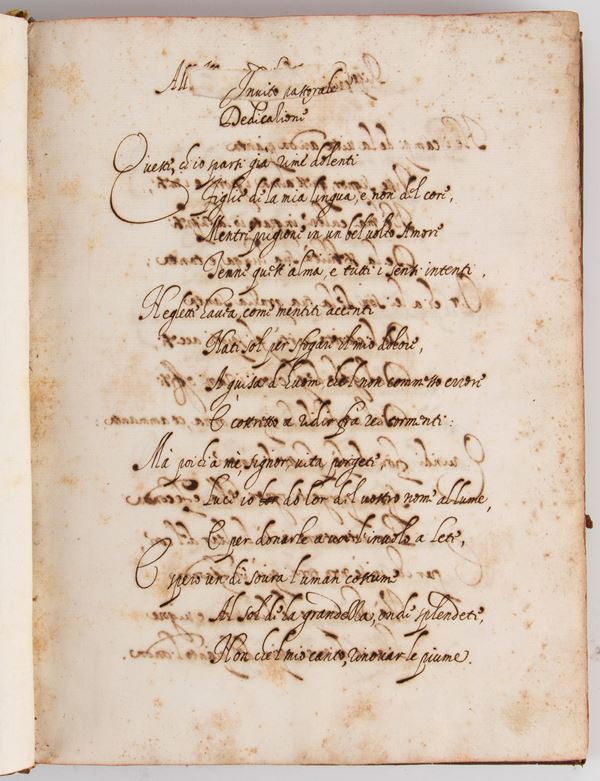 All
Invito pastorale
Dedicatione
Queste, ch'io sparsi già rime dolenti
Figlie de la mia lingua, e non del core,
Mentre prigione in un bel volto Amore
Tenne quest'alma, e tutti i sensi intenti,
Neglette havea, come mentiti accenti
Nati sol per sfogare il mio dolore,
A guisa d'huom, che'l non commesso errore
È costretto a ridir fra rei tormenti:
Mà poich'a mè signor vita porgete,
Luce io do lor del vostro nome al lume,
E per donarle a voi l'involo a Lete,
E spero un dì soura l'uman costume
Al sol de la grandezza, onde splendete,
Non che'l mio canto, rinovar le piume.